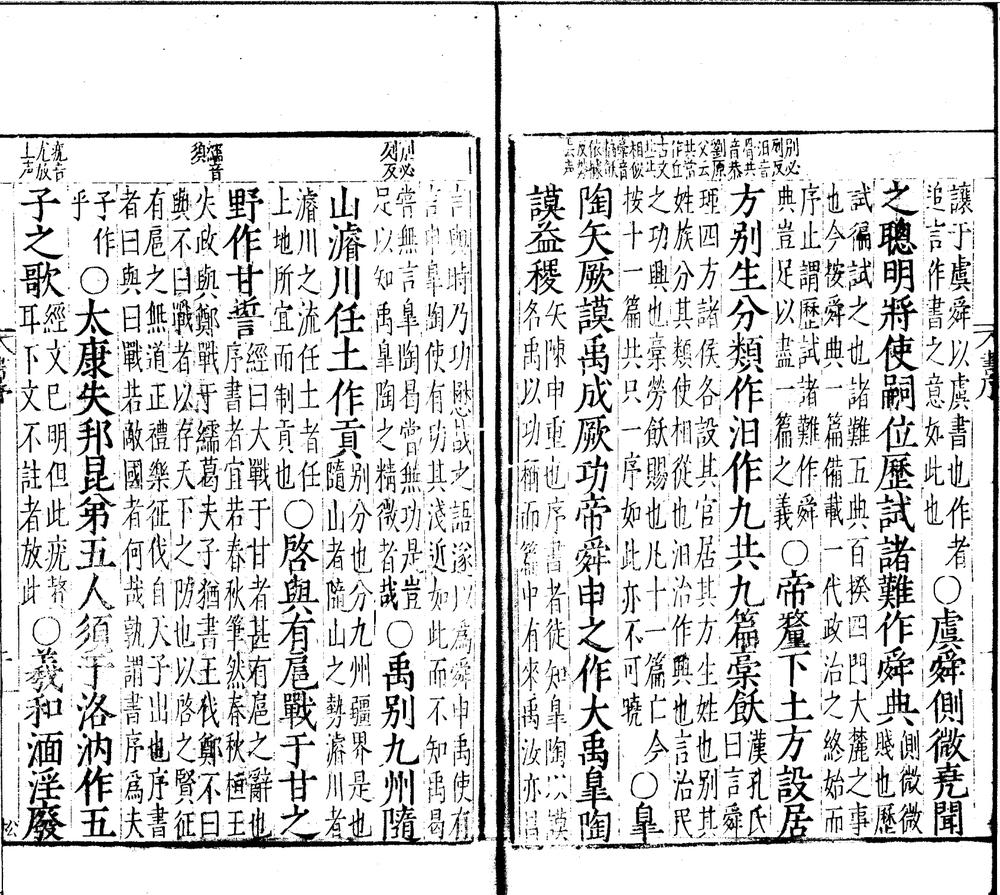 讓于虞舜以虞書也作者
追言作書之意如此也
〇虞舜側微堯聞
之聰明將使嗣位歷試諸難作舜典
側微微
賤也歷
試徧試之也諸難五典百揆四門大麓之事
也今按舜典一篇備載一代政治之終始而
序止謂歷試諸難作舜
典豈足以盡一篇之義
〇帝釐下土方設居
方别生分類作汨作九共九篇槀飫
漢孔氏
曰言舜
理四方諸侯各設其官居其方生姓也别其
姓族分其類使相從也汨治作興也言治民
之功興也槀勞飫賜也凡十一篇亡今
按十一篇共只一序如此亦不可曉
〇皐
陶矢厥謨禹成厥功帝舜申之作大禹皐陶
謨益稷
矢陳申重也序書者徒知皐陶以謨
名禹以功稱而篇中有來禹汝亦昌
言與時乃功懋哉之語遂以爲舜申禹使有
言申皐陶使有功其淺近如此而不知禹曷
嘗無言皐陶曷嘗無功是豈
足以知禹皐陶之精微者哉
〇禹别九州隨
山濬川任土作貢
别分也分九州疆界是也
隨山者隨山之勢濬川者
濬川之流任土者任
土地所宜而制貢也
〇啓與有扈戰于甘之
野作甘誓
經曰大戰于甘者甚有扈之辭也
序書者宜若春秋筆然春秋桓王
失政與鄭戰于繻葛夫子猶書王伐鄭不曰
與不曰戰者以存天下之防也以啓之賢征
有扈之無道正禮樂征伐自天子出也序書
者曰與曰戰若敵國者何哉孰謂書序爲夫
子作
乎
〇太康失邦昆弟五人須于洛汭作五
子之歌
經文已明但此疣贅
耳下文不註者放此
〇羲和湎淫廢